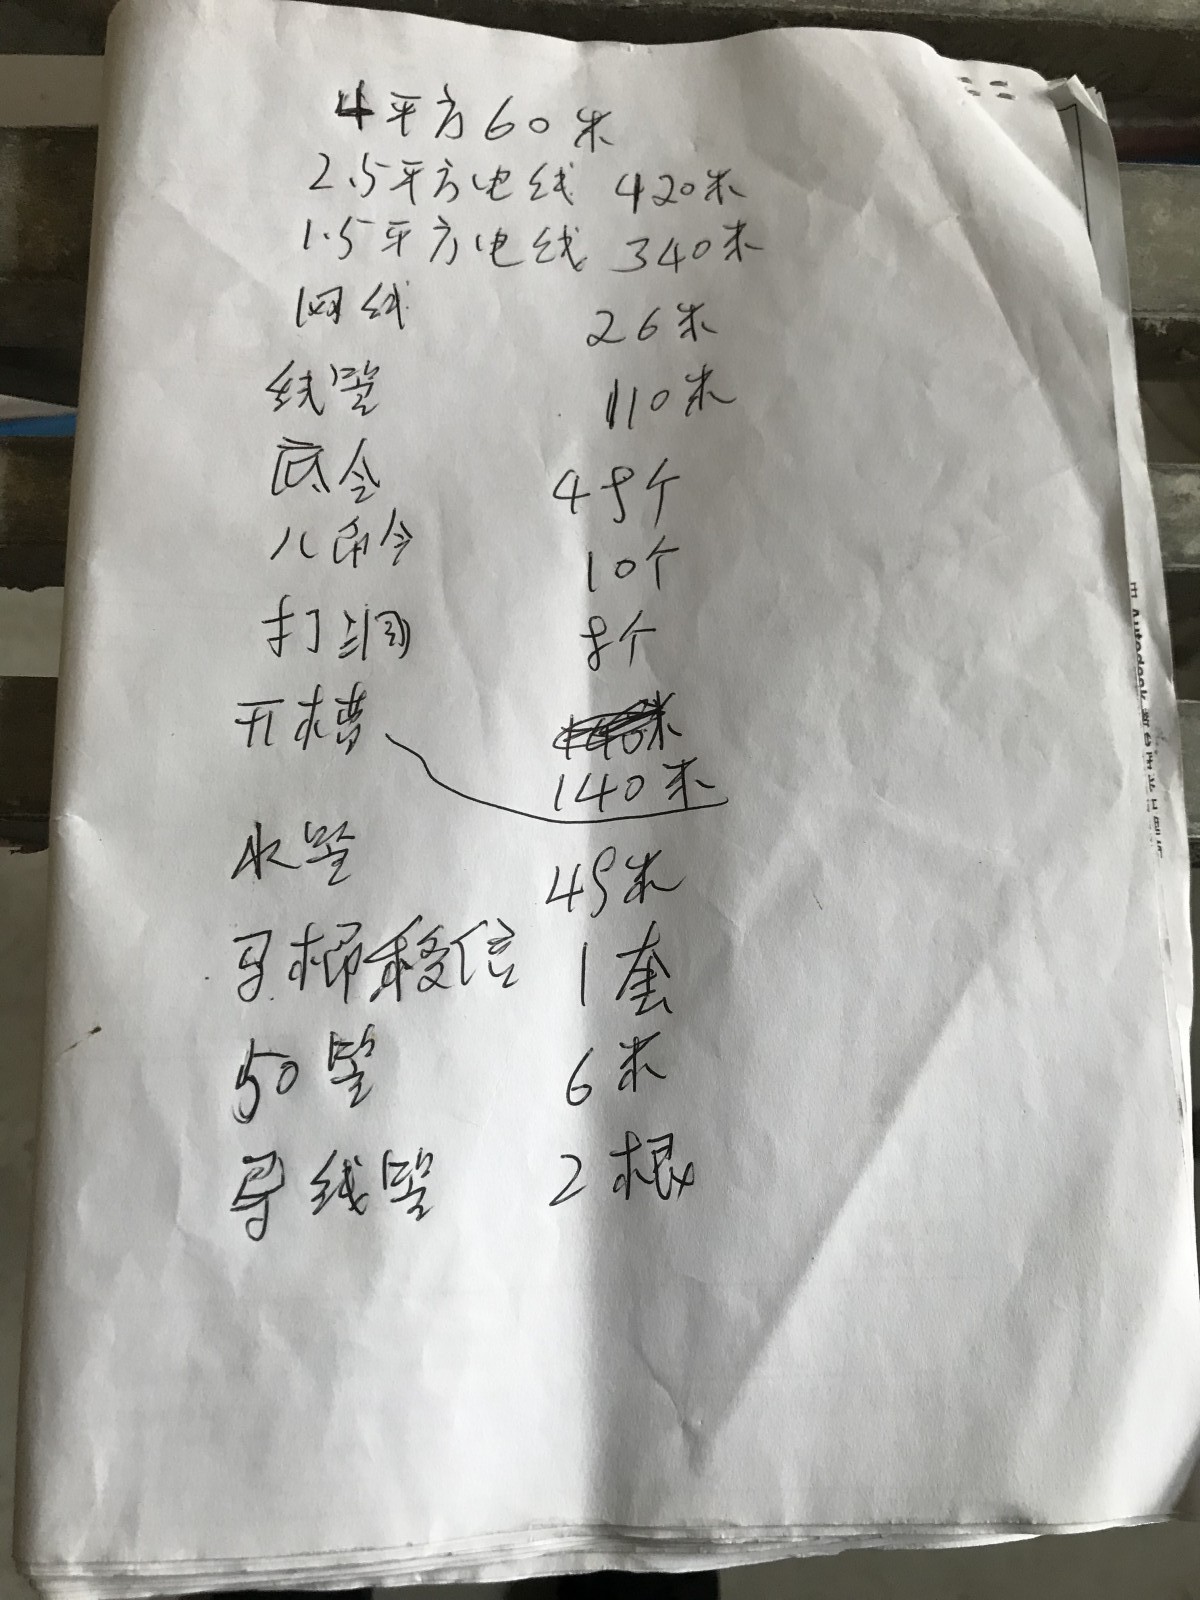 4平方60米
2.5平方电线 420米
1.5平方电线 340米
网线 26米
线管 110米
底合 48个
八角合 10个
打洞 8个
开槽
140米
水管 米
马桶移位 1套
50管 6米
线管 2根
Autodesk